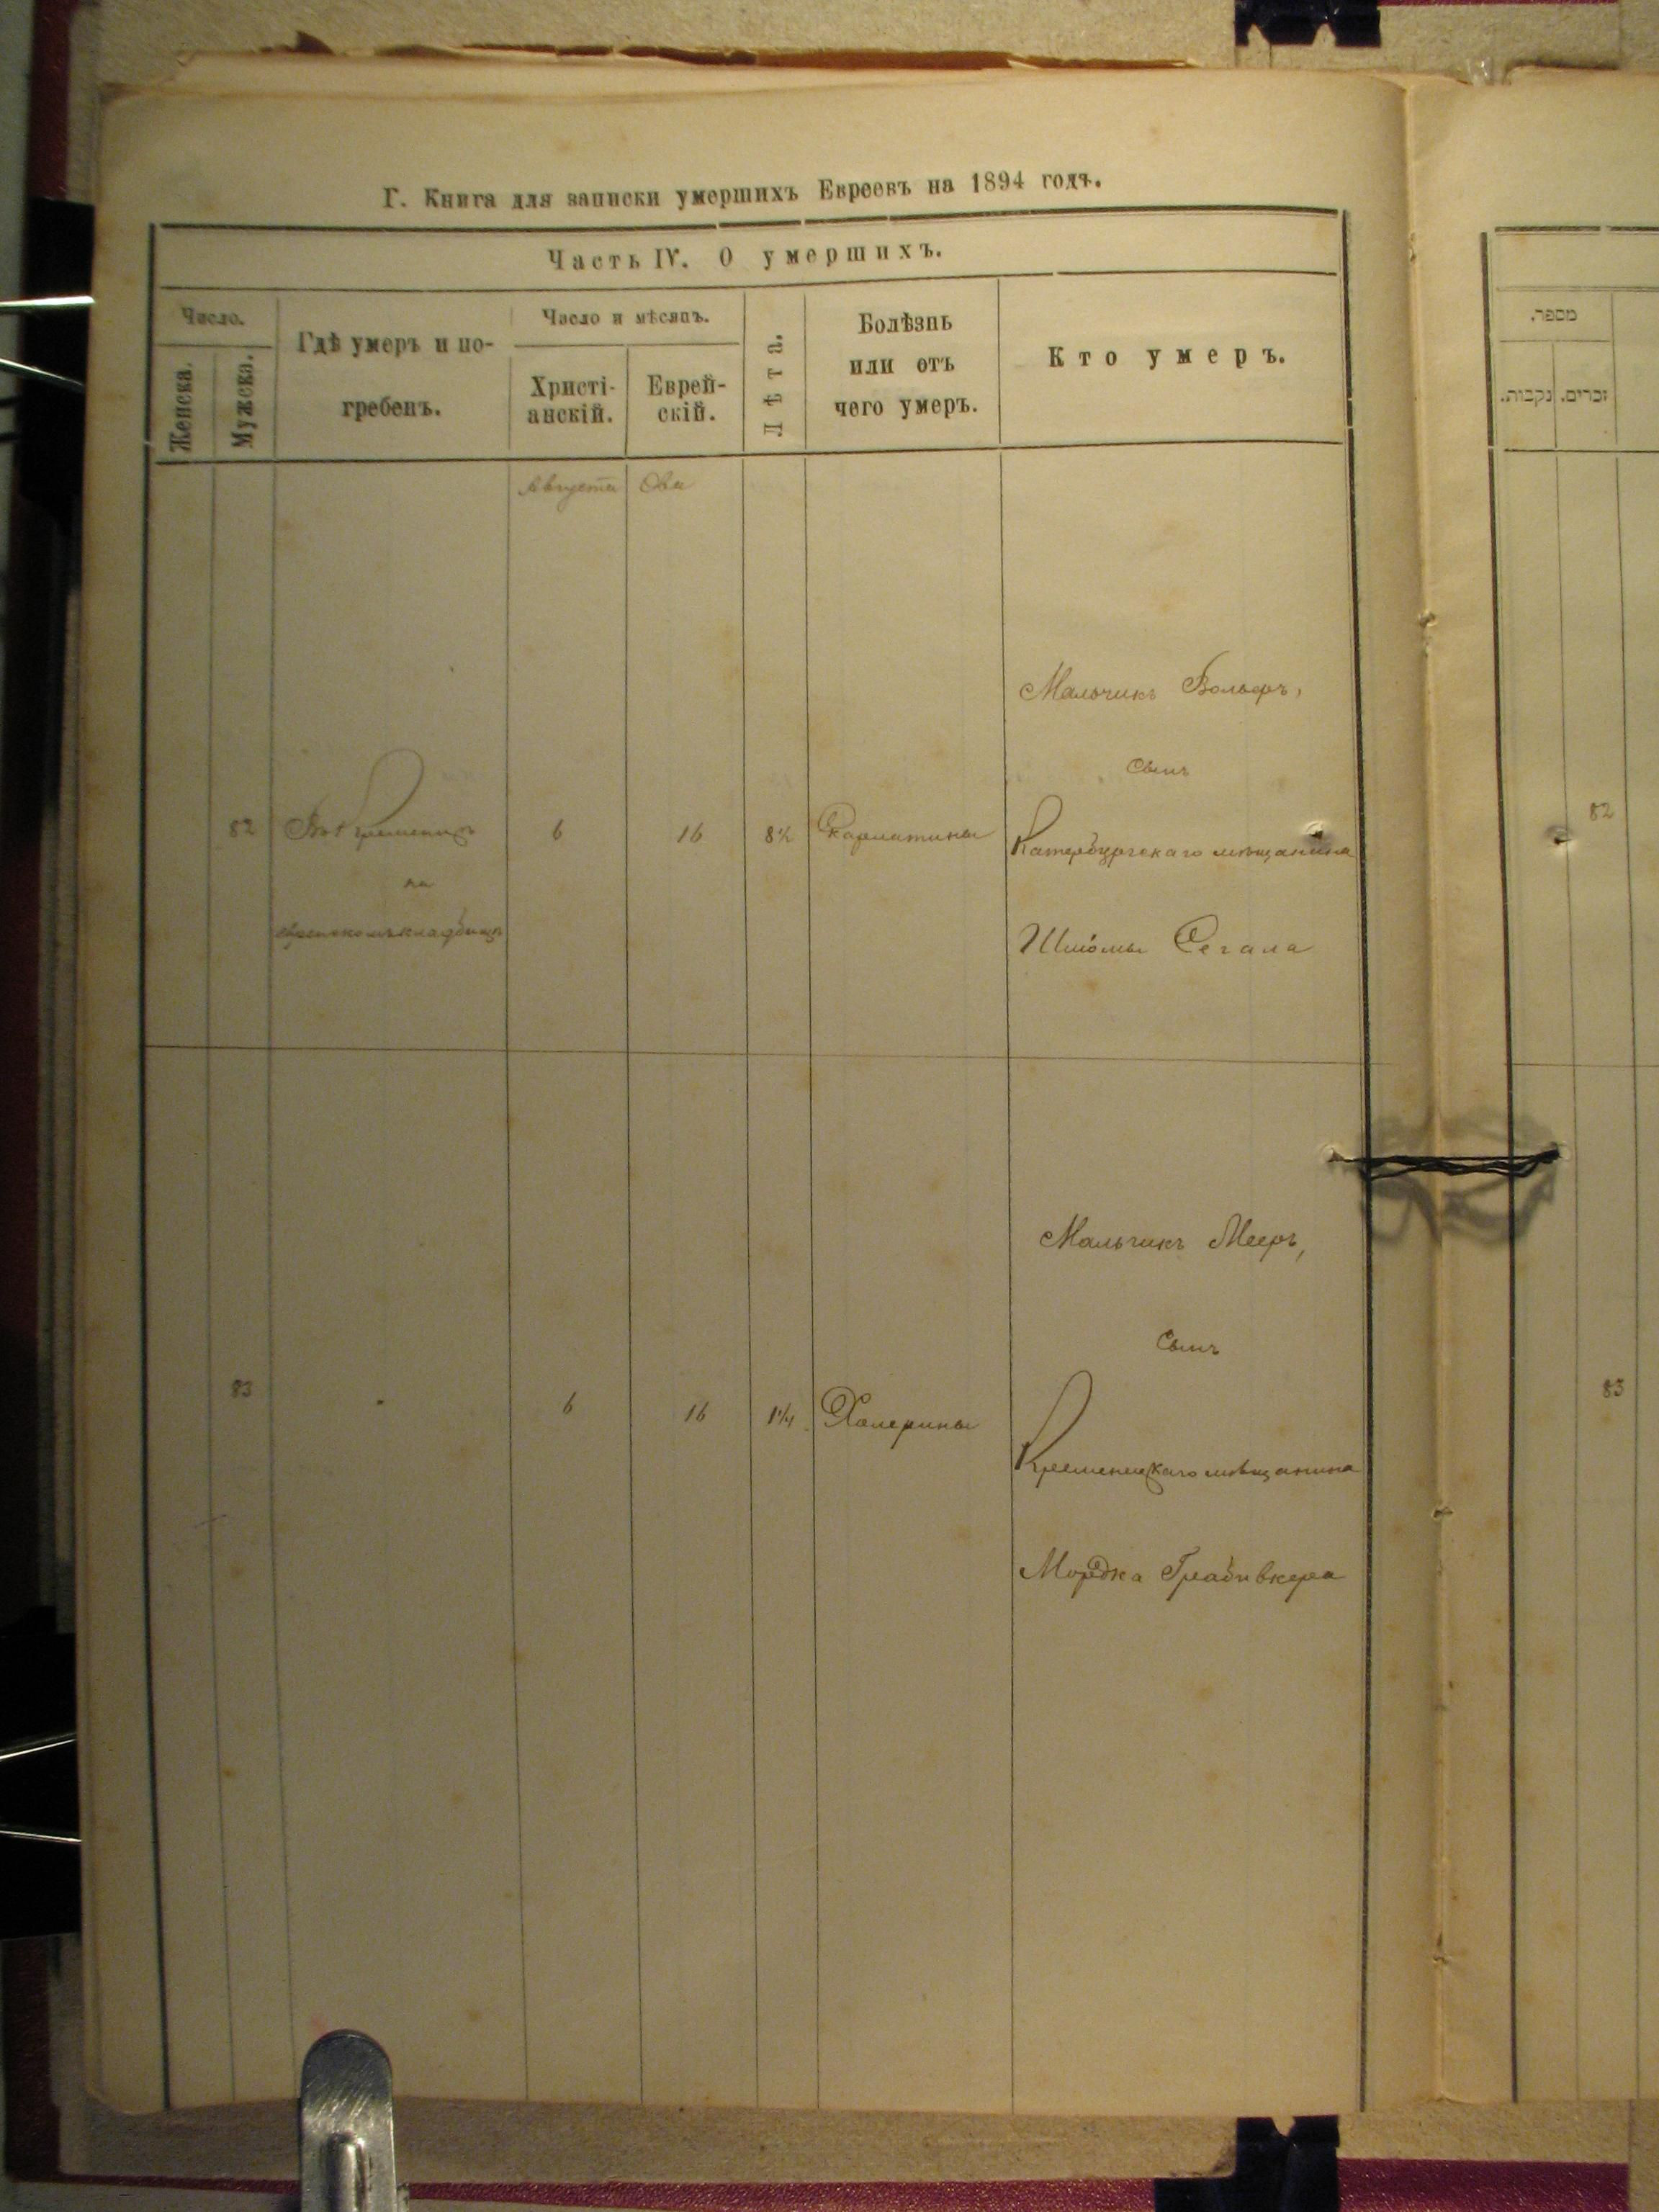 Г. Книга для записки умершихъ Евреевъ на 1894 годъ.
Часть IV. О умершихъ.
Число.
Женска.
Мужска.
Гдѣ умеръ и по-
гребенъ.
Число и мѣсяцъ.
Христі-
анскій.
Еврей-
скій.
Лѣта.
Болѣзнь
или отъ
чего умеръ.
Кто умеръ.
Августа
Ова
Мальчикъ Вольфъ,
сынъ
82 Въ Кременцѣ 6 16 8½ Скарлатины Катербургскаго мѣщанина
на
еврейскомъ кладбищѣ
Шлёмы Сегала
Мальчикъ Мееръ,
Сынъ
83 " 6 16 1¼ Холерины
Кременецкаго мѣщанина
Мордка Грабивкера
מספר.
נקבות.
זכרים.
82
83